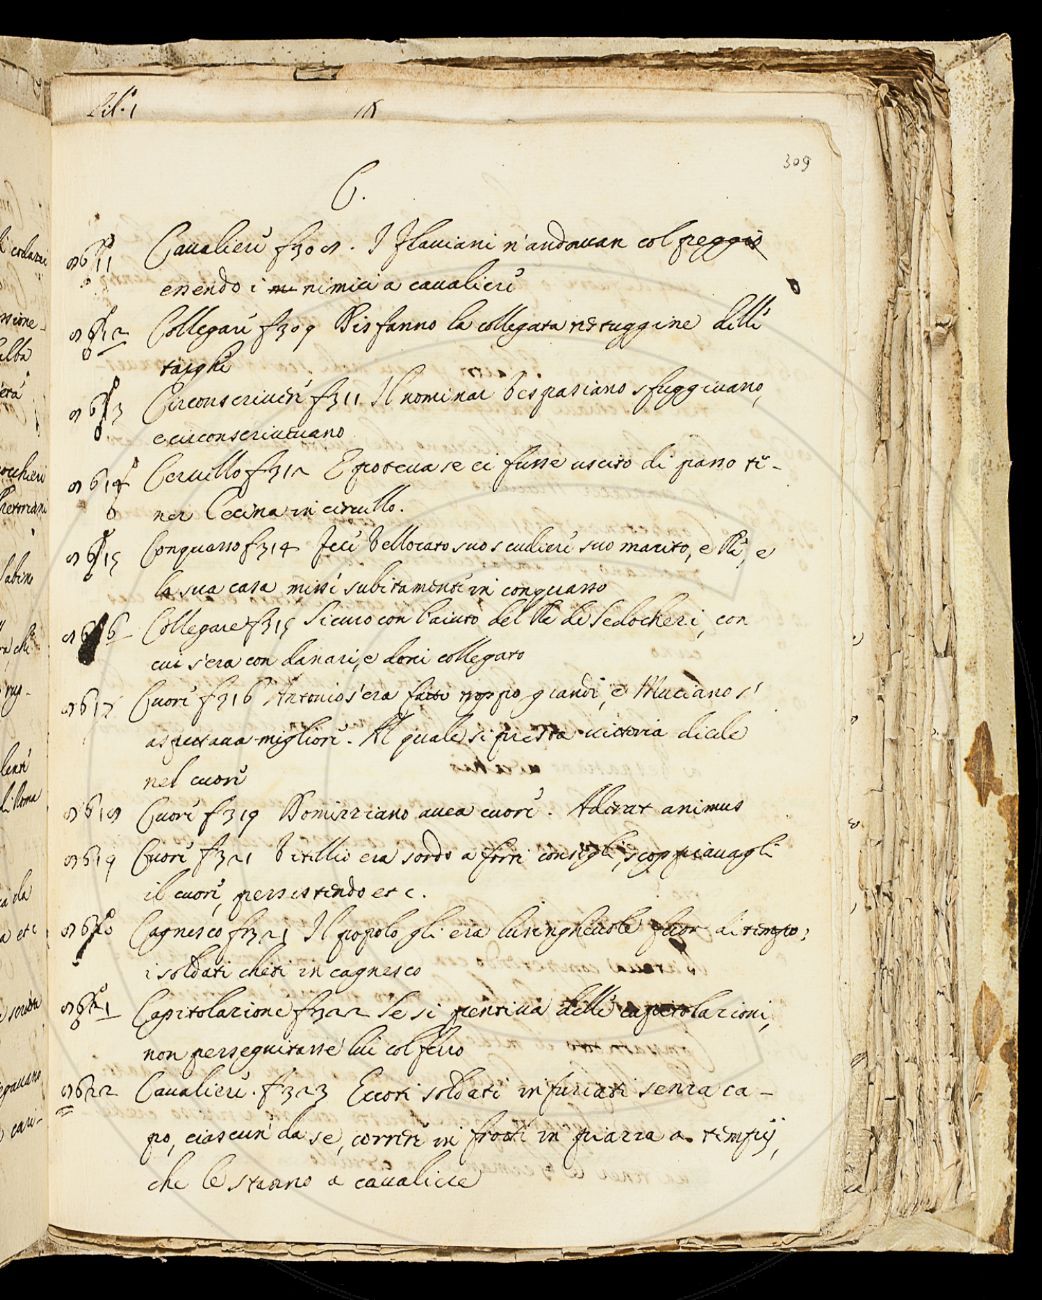 Lib. 1
309
C.
Cavalieri f308. I Flaviani n'andavan col peggio
essendo i nimici a cavalieri
Collegare f309 Disfanno la collegata testuggine delle
targhe
Circonscrivere f311 Il nominar Vespasiano sfuggivano,
e circonscrivevano
Cervello f312 E poteva se ei fusse uscito di passo te-
ner Cecina in cervello.
Conquasso f314 Fece Vellocato suo scudiere suo marito, e Re, e
la sua casa misse subitamente in conquasso
Collegare f315 Sicuro con l'aiuto del Re de Sedocheri, con
cui s'era con danari, e doni collegato
Cuore f316 Antonio s'era fatto troppo grande, e Muciano s'
aspettava migliore. Al quale si presta vittoria dicele
nel cuore
Cuore f319 Domizziano avea cuore. Aderat animus
Cuore f321 Vitellio era sordo a forti consigli, scoppiavagli
il cuore, persistendo etc.
Cagnesco f321 Il popolo gli era lusinghevole fuor di tempo;
i soldati cheti in cagnesco
Capitolazione f322 Se si pentiva delle capitolazioni,
non perseguitasse lui col ferro
Cavaliere. f323 Eccoti soldati infuriati senza ca-
po, ciascun da se, correre in frotte in piazza a tempij,
che le stanno a cavaliere